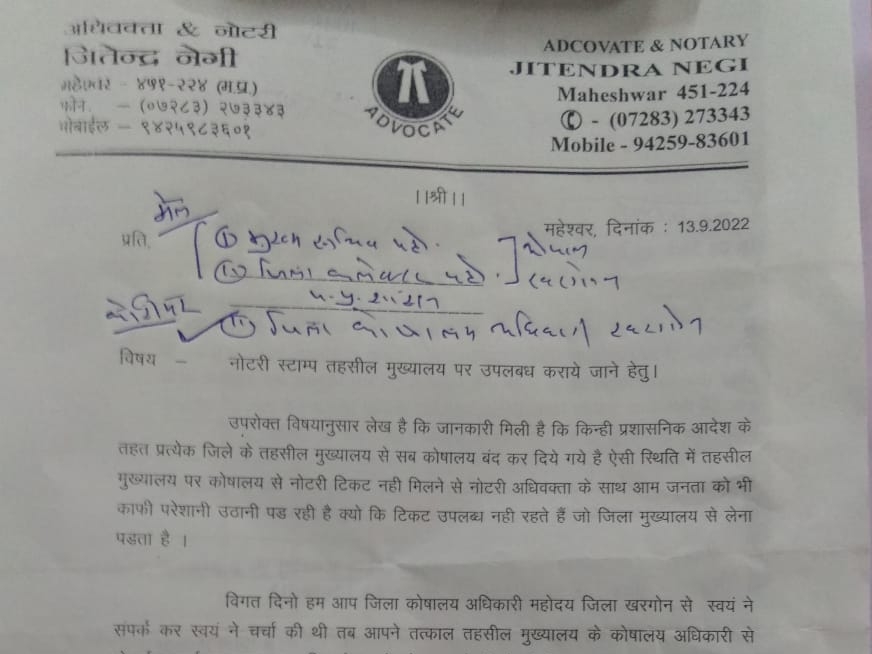 अधिवक्ता & नोटरी
जितेन्द्र नेगी
महेश्वर - ४५१-२२४ (म.प्र.)
फोन. - (०७२८३) २७३३४३
मोबाईल - ९४२५९८३६०१
ADVOCATE
ADCOVATE & NOTARY
JITENDRA NEGI
Maheshwar 451-224
✆ - (07283) 273343
Mobile - 94259-83601
||श्री||
महेश्वर, दिनांक : 13.9.2022
मेल
प्रति,
① मुख्य सचिव महो. भोपाल
जिला कलेक्टर महो. खरगोन
म.प्र. शासन
जिला कोषालय अधिकारी खरगोन
विषय - नोटरी स्टाम्प तहसील मुख्यालय पर उपलबध कराये जाने हेतु।
उपरोक्त विषयानुसार लेख है कि जानकारी मिली है कि किन्ही प्रशासनिक आदेश के
तहत प्रत्येक जिले के तहसील मुख्यालय से सब कोषालय बंद कर दिये गये है ऐसी स्थिति में तहसील
मुख्यालय पर कोषालय से नोटरी टिकट नही मिलने से नोटरी अधिवक्ता के साथ आम जनता को भी
काफी परेशानी उठानी पड रही है क्यो कि टिकट उपलब्ध नही रहते हैं जो जिला मुख्यालय से लेना
पडता है ।
विगत दिनो हम आप जिला कोषालय अधिकारी महोदय जिला खरगोन से स्वयं ने
संपर्क कर स्वयं ने चर्चा की थी तब आपने तत्काल तहसील मुख्यालय के कोषालय अधिकारी से